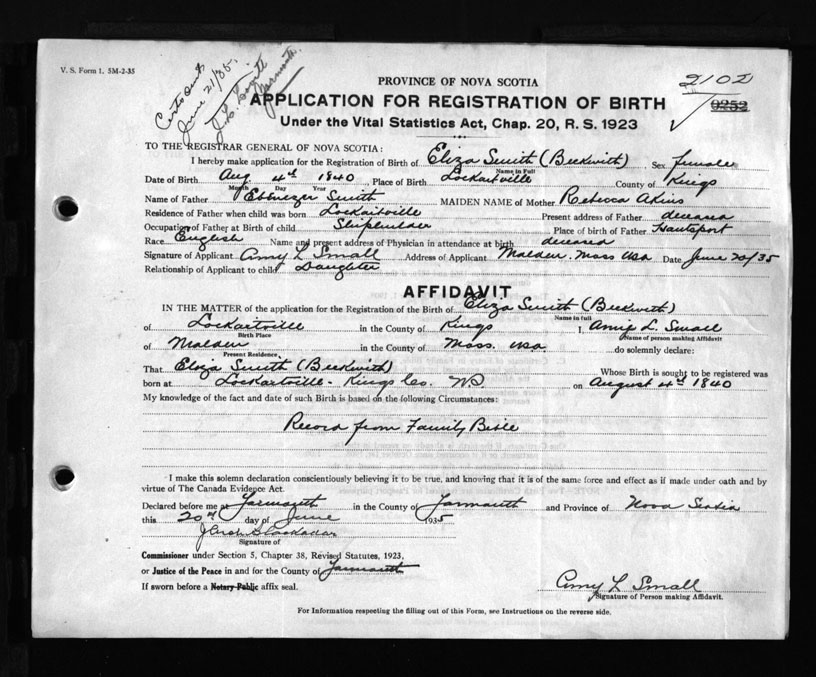 V. S. Form 1. 5M-2-35
June 21/35.
Yarmouth
2102
9252
PROVINCE OF NOVA SCOTIA
APPLICATION FOR REGISTRATION OF BIRTH
Under the Vital Statistics Act, Chap. 20, R. S. 1923
TO THE REGISTRAR GENERAL OF NOVA SCOTIA:
I hereby make application for the Registration of Birth of Eliza Smith (Beckwith) Sex female
Name in Full
Date of Birth Aug 4th 1840, Place of Birth Lockartville County of Kings
Month Day Year
Name of Father Ebenezer Smith MAIDEN NAME of Mother Rebecca Akins
Residence of Father when child was born Lockartville Present address of Father deceased
Occupation of Father at Birth of child Shipbuilder Place of birth of Father Hantsport
Race English Name and present address of Physician in attendance at birth deceased
Signature of Applicant Amy L Small Address of Applicant Malden. Mass USA Date June 20/35
Relationship of Applicant to child Daughter
AFFIDAVIT
IN THE MATTER of the application for the Registration of the Birth of Eliza Smith (Beckwith)
Name in full
of Lockartville in the County of Kings I, Amy L. Small
Birth Place Name of person making Affidavit
of Malden in the County of Mass. USA. do solemnly declare:
Present Residence.
That Eliza Smith (Beckwith) Whose Birth is sought to be registered was
born at Lockartville - Kings Co. NS on August 4th 1840
My knowledge of the fact and date of such Birth is based on the following Circumstances:
Record from Family Bible
I make this solemn declaration conscientiously believing it to be true, and knowing that it is of the same force and effect as if made under oath and by
virtue of The Canada Evidence Act.
Declared before me at Yarmouth in the County of Yarmouth and Province of Nova Scotia
this 20th day of June 1935
Signature of
Commissioner under Section 5, Chapter 38, Revised Statutes, 1923,
or Justice of the Peace in and for the County of Yarmouth
If sworn before a Notary Public affix seal.
Amy L Small
Signature of Person making Affidavit.
For Information respecting the filling out of this Form, see Instructions on the reverse side.